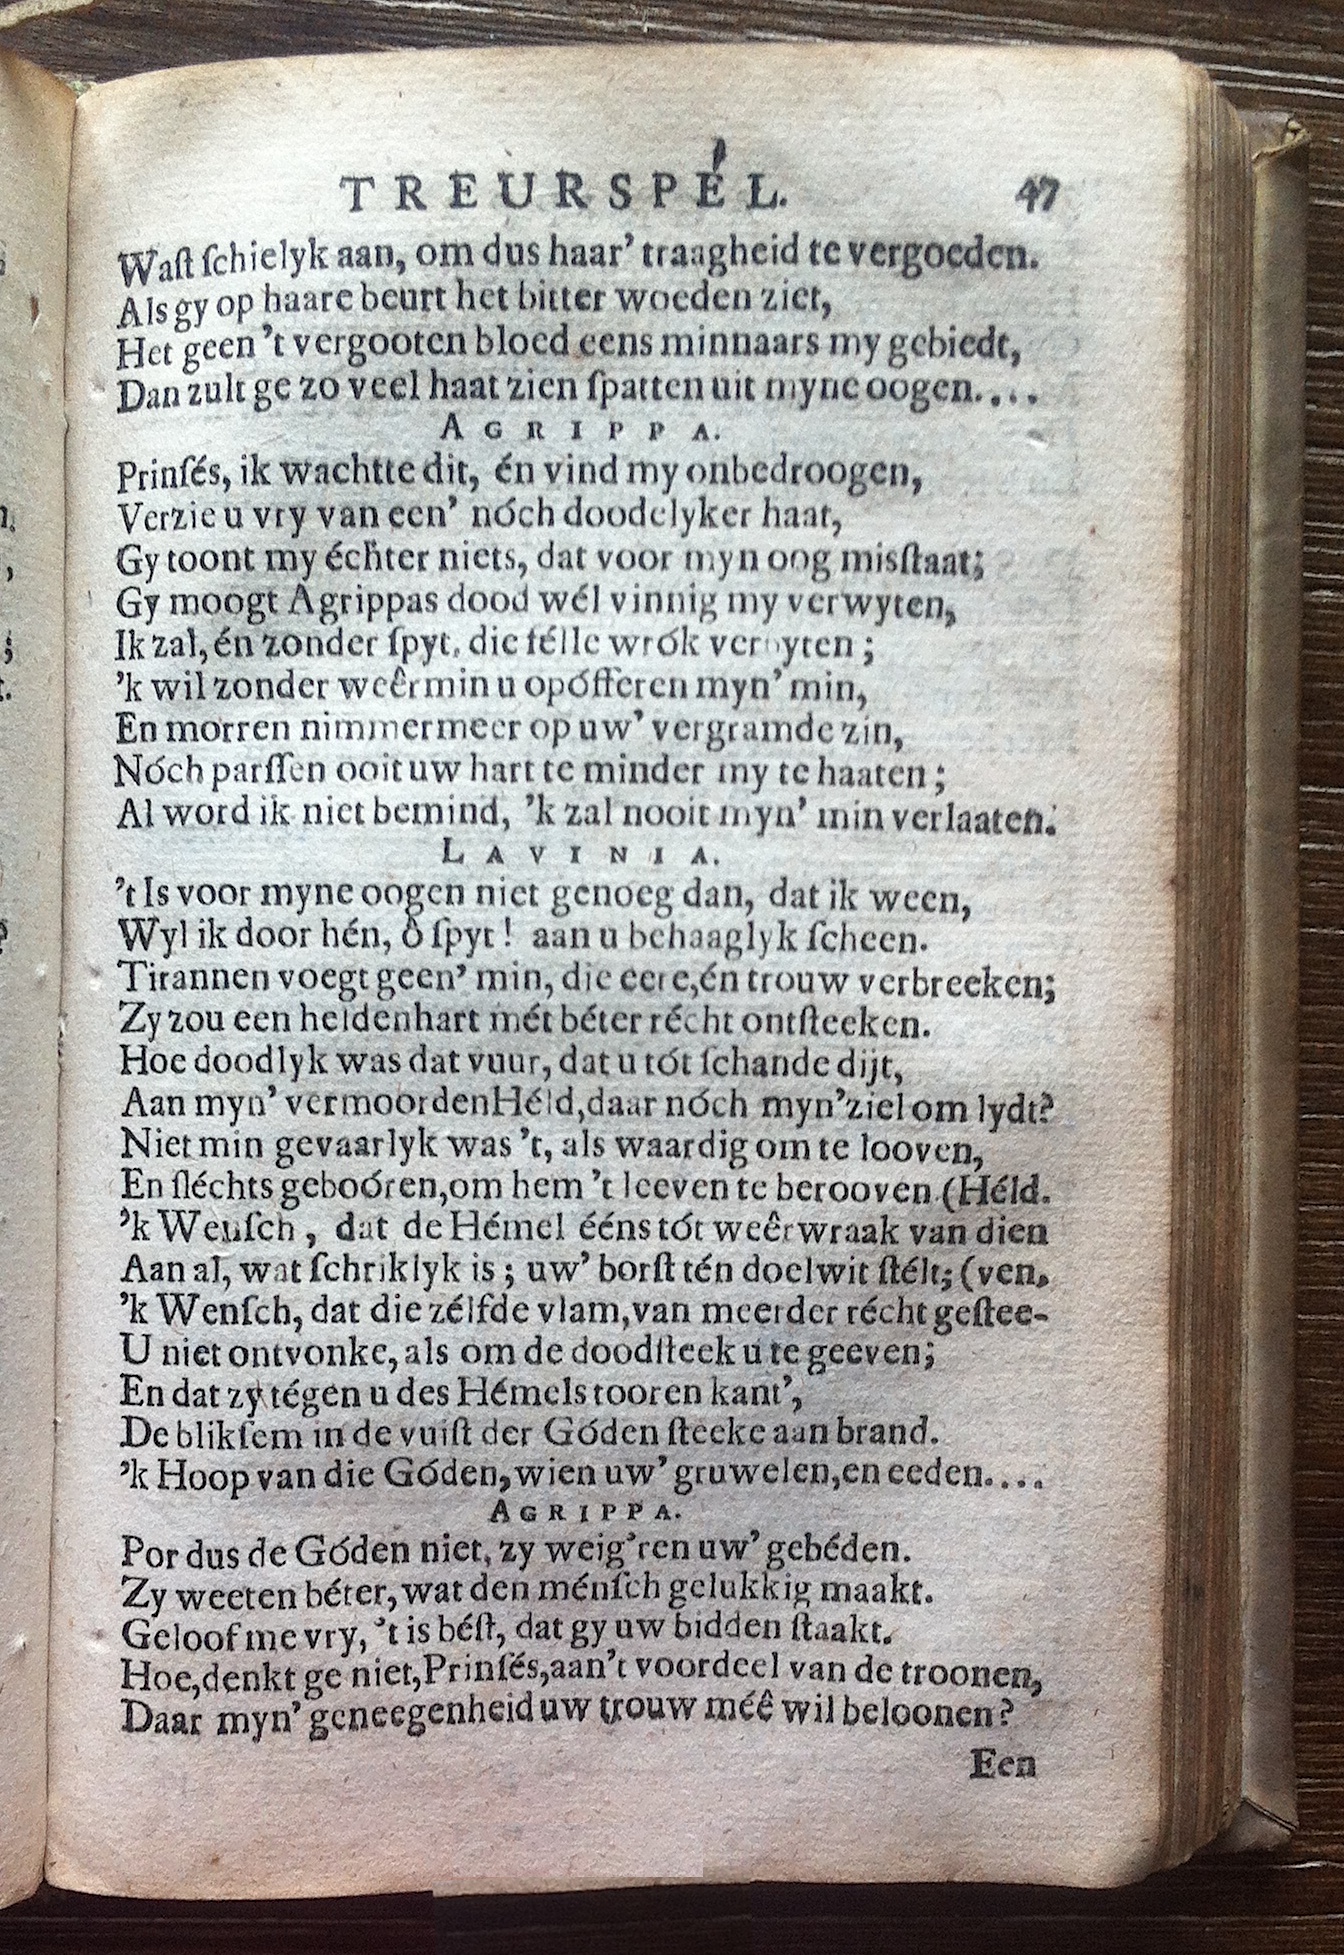 TREURSPÉL. 47
Waſt ſchielyk aan, om dus haar' traagheid te vergoeden.
Als gy op haare beurt het bitter woeden ziet,
Het geen 't vergooten bloed eens minnaars my gebiedt,
Dan zult ge zo veel haat zien ſpatten uit myne oogen....
AGRIPPA.
Prinſés, ik wachtte dit, én vind my onbedroogen,
Verzie u vry van een' nóch doodelyker haat,
Gy toont my échter niets, dat voor myn oog misſtaat;
Gy moogt Agrippas dood wél vinnig my verwyten,
Ik zal, én zonder ſpyt, die félle wrók verbyten;
'k wil zonder weêrmin u opófferen myn' min,
En morren nimmermeer op uw' vergramde zin,
Nóch parſſen ooit uw hart te minder my te haaten;
Al word ik niet bemind, 'k zal nooit myn' min verlaaten.
LAVINIA.
't Is voor myne oogen niet genoeg dan, dat ik ween,
Wyl ik door hén, ô ſpyt! aan u behaaglyk ſcheen.
Tirannen voegt geen' min, die eere, én trouw verbreeken;
Zy zou een heidenhart mét béter récht ontſteeken.
Hoe doodlyk was dat vuur, dat u tót ſchande dijt,
Aan myn' vermoorden Héld, daar nóch myn' ziel om lydt?
Niet min gevaarlyk was 't, als waardig om te looven,
En ſléchts geboóren, om hem 't leeven te berooven. (Héld.
'k Wenſch, dat de Hémel ééns tót weêrwraak van dien
Aan al, wat ſchriklyk is; uw' borſt tén doelwit ſtélt; (ven,
'k Wenſch, dat die zélfde vlam, van meerder récht geſtee-
U niet ontvonke, als om de doodſteek u te geeven;
En dat zy tégen u des Hémels tooren kant',
De blikſem in de vuiſt der Góden ſteeke aan brand.
'k Hoop van die Góden, wien uw' gruwelen, en eeden....
AGRIPPA.
Por dus de Góden niet, zy weig'ren uw' gebéden.
Zy weeten béter, wat den ménſch gelukkig maakt.
Geloof me vry, 't is béſt, dat gy uw bidden ſtaakt.
Hoe, denkt ge niet, Prinſés, aan 't voordeel van de troonen,
Daar myn' geneegenheid uw trouw méê wil beloonen?
Een